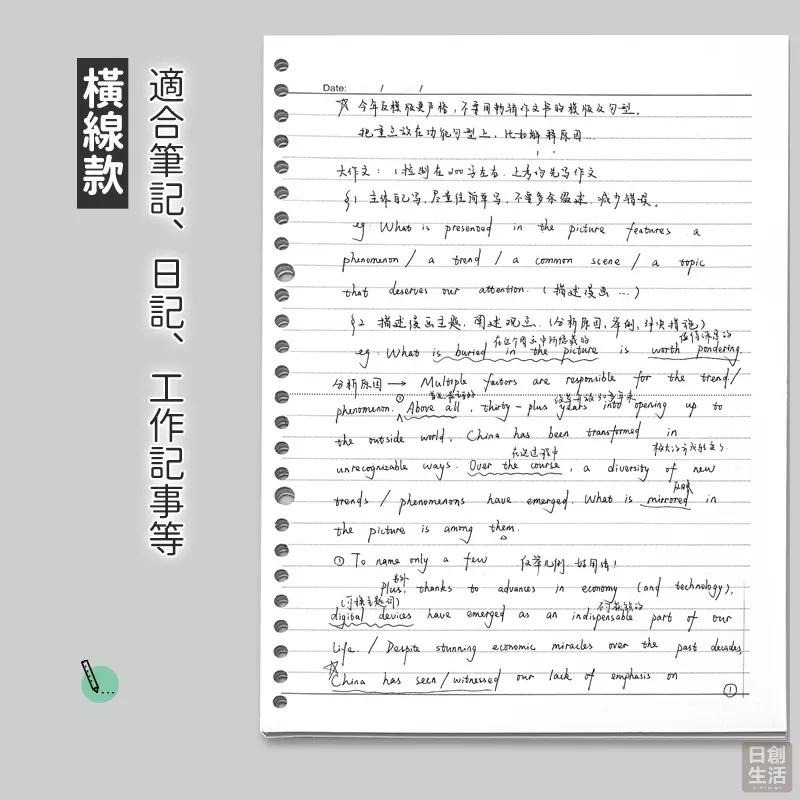 橫線款
適合筆記、日記、工作記事等
Date: / /
☆ 今年反模版更严格，不要用畅销作文书的模版及句型。
把重点放在功能句型上，比如解释原因...
大作文：1 控制在200字左右，上考场先写作文
§1 主体自己写，尽量往简单写，不要多余叙述，减少错误。
eg What is presented in the picture features a
phenomenon / a trend / a common scene / a topic
that deserves our attention. (描述漫画...)
§2 描述漫画主题，阐述观点。(分析原因，举例，解决措施)
在这个图画中所隐藏的 值得深思的
eg. What is buried in the picture is worth pondering.
分析原因 → Multiple factors are responsible for the trend/
phenomenon. ① Above all, thirty-plus years into opening up to
the outside world, China has been transformed in
在这过程中
unrecognizable ways. Over the course, a diversity of new
反映
trends / phenomenons have emerged. What is mirrored in
the picture is among them.
② To name only a few 仅举几例，好用情!
另外
Plus, thanks to advances in economy (and technology),
(可换主题词) 不可或缺的
digital devices have emerged as an indispensable part of our
life. / Despite stunning economic miracles over the past decades
☆
China has seen / witnessed our lack of emphasis on
①
日創生活